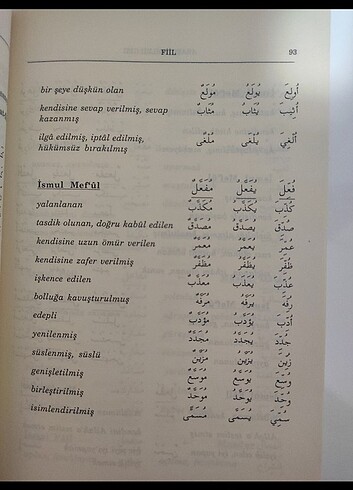 FİİL 93
bir şeye düşkün olan مُولَعٌ يُولَعُ أُولِعَ
kendisine sevap verilmiş, sevap kazanmış مُثَابٌ يُثَابُ أُثِيبَ
ilgâ edilmiş, iptâl edilmiş, hükümsüz bırakılmış مُلْغًى يُلْغَى أُلْغِيَ
İsmul Mef'ûl مُفَعَّلٌ يُفَعَّلُ فُعِّلَ
yalanlanan مُكَذَّبٌ يُكَذَّبُ كُذِّبَ
tasdik olunan, doğru kabûl edilen مُصَدَّقٌ يُصَدَّقُ صُدِّقَ
kendisine uzun ömür verilen مُعَمَّرٌ يُعَمَّرُ عُمِّرَ
kendisine zafer verilmiş مُظَفَّرٌ يُظَفَّرُ ظُفِّرَ
işkence edilen مُعَذَّبٌ يُعَذَّبُ عُذِّبَ
bolluğa kavuşturulmuş مُرَفَّهٌ يُرَفَّهُ رُفِّهَ
edepli مُؤَدَّبٌ يُؤَدَّبُ أُدِّبَ
yenilenmiş مُجَدَّدٌ يُجَدَّدُ جُدِّدَ
süslenmiş, süslü مُزَيَّنٌ يُزَيَّنُ زُيِّنَ
genişletilmiş مُوَسَّعٌ يُوَسَّعُ وُسِّعَ
birleştirilmiş مُوَحَّدٌ يُوَحَّدُ وُحِّدَ
isimlendirilmiş مُسَمًّى يُسَمَّى سُمِّيَ